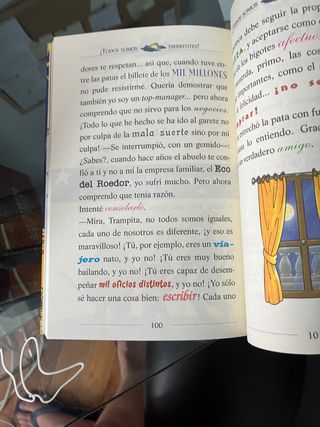 ¡TODOS SOMOS DIFERENTES!
dores te respetan... así que, cuando tuve en-
tre las patas el billete de los MIL MILLONES
no pude resistirme. Quería demostrar que
también yo soy un top-manager... pero ahora
comprendo que no sirvo para los negocios.
¡Todo lo que hecho se ha ido al garete no
por culpa de la mala suerte sino por mi
culpa! —Se interrumpió, con un gemido—:
¿Sabes?, cuando hace años el abuelo te con-
fió a ti y no a mí la empresa familiar, el Eco
del Roedor, yo sufrí mucho. Pero ahora
comprendo que tenía razón.
Intenté consolarle.
—Mira, Trampita, no todos somos iguales,
cada uno de nosotros es diferente, ¡y eso es
maravilloso! ¡Tú, por ejemplo, eres un via-
jero nato, y yo no! ¡Tú eres muy bueno
bailando, y yo no! ¡Tú eres capaz de desem-
peñar mil oficios distintos, y yo no! ¡Yo sólo
sé hacer una cosa bien: escribir! Cada uno
100
¡TODOS SOMOS
debe seguir la prop
y aceptarse como
los bigotes afectuos
primo, las cos
importantes, como el
felicidad... ¡no se
estrechó la pata con fu
lo entiendo. Grac
verdadero amigo.